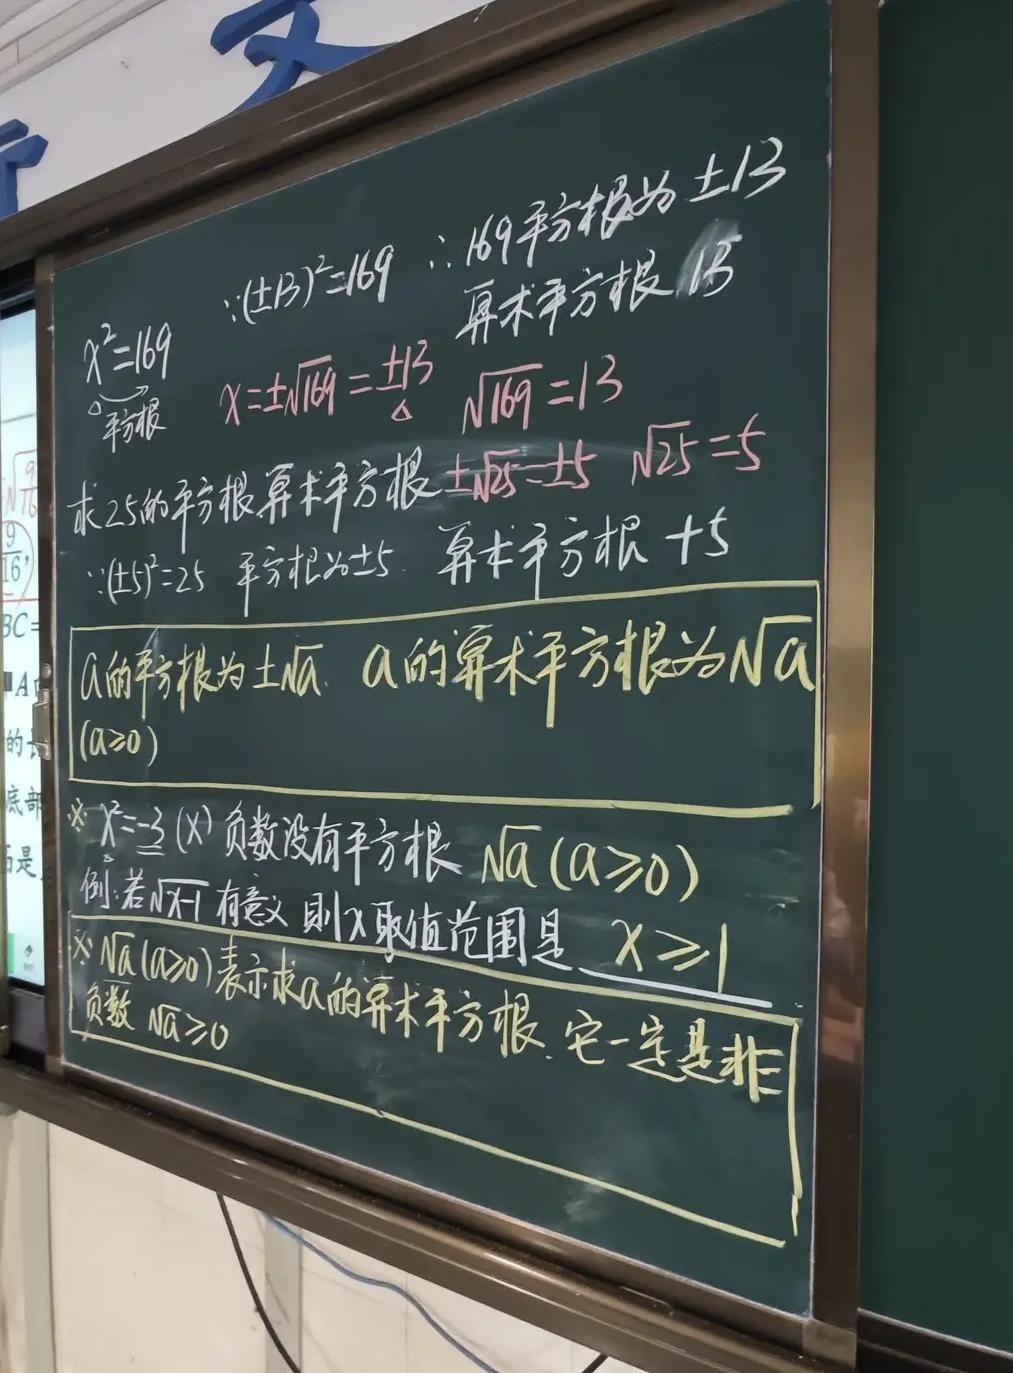 文
∵(±13)²=169 ∴169平方根为±13
算术平方根 13
x²=169
平方根
x=±√169=±13 √169=13
求25的平方根算术平方根 ±√25=±5 √25=5
∵(±5)²=25 平方根为±5. 算术平方根 +5
a的平方根为±√a. a的算术平方根为√a
(a≥0)
※ x²=-3(×) 负数没有平方根 √a(a≥0)
例:若√x-1 有意义 则x取值范围是 x≥1
※ √a(a≥0)表示求a的算术平方根. 它一定是非
负数 √a≥0
9
16
BC=
A
的长
底部
是